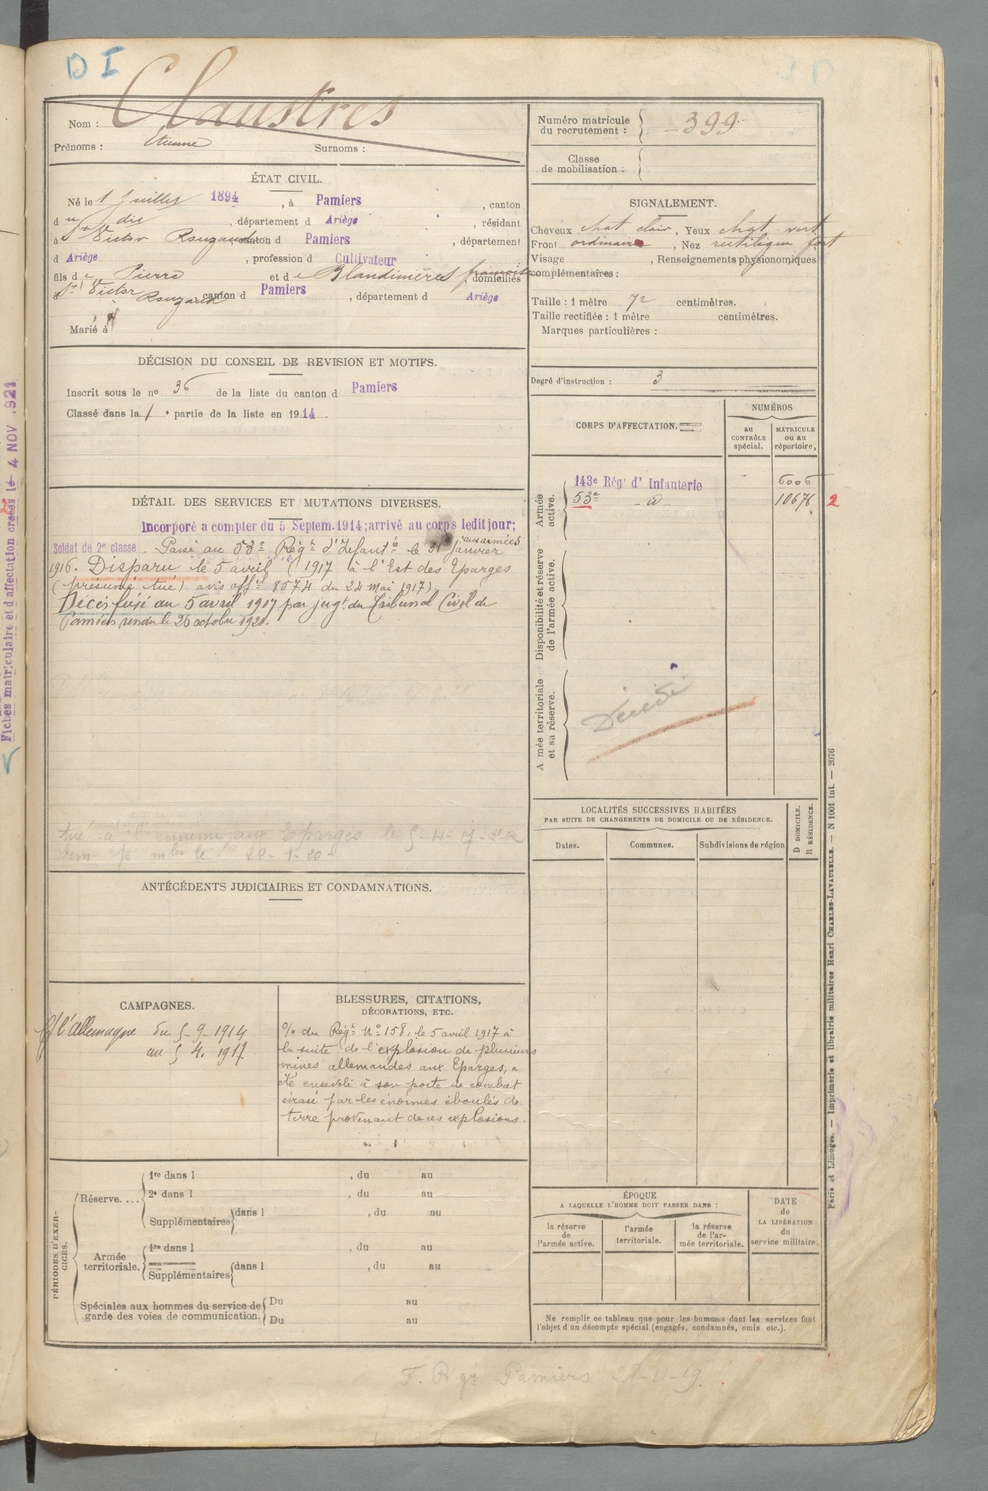 D I
Nom : Claustres
Prénoms : Etienne Surnoms :
ÉTAT CIVIL.
Né le 1 Juillet 1894, à Pamiers, canton
d u dit, département d Ariège, résidant
à St Victor Rouzaud canton d Pamiers, département
d Ariège, profession d Cultivateur
fils de Pierre et de Blandinières françoise, domiciliés
à St Victor Rouzaud canton d Pamiers, département d Ariège
Marié à
DÉCISION DU CONSEIL DE REVISION ET MOTIFS.
Inscrit sous le no 36 de la liste du canton d Pamiers
Classé dans la 1 e partie de la liste en 1914
DÉTAIL DES SERVICES ET MUTATIONS DIVERSES.
Incorporé a compter du 5 Septem. 1914; arrivé au corps ledit jour;
Soldat de 2e classe. Passé au 53e Régt d'Infantie le 31 Janvier aux armées
1916. Disparu le 5 avril 1917 à l'Est des Eparges
(présumé tué) avis offel 8574 du 24 mai 1917).
Décès fixé au 5 avril 1917 par jugt du Tribunal Civil de
Pamiers rendu le 26 octobre 1920.
Tué à l'ennemi aux Eparges le 5-4-17
ANTÉCÉDENTS JUDICIAIRES ET CONDAMNATIONS.
CAMPAGNES.
C/ l'allemagne du 5-9-1914
au 5 4. 1917
BLESSURES, CITATIONS,
DÉCORATIONS, ETC.
O/o du Régt No 158: le 5 avril 1917 à
la suite de l'explosion de plusieurs
mines allemandes aux Eparges, a
été enseveli à son poste de combat
écrasé par les énormes éboulis de
terre provenant de ces explosions.
PÉRIODES D'EXERCICES.
Réserve....
1re dans l , du au
2e dans l , du au
Supplémentaires dans l , du au
Armée territoriale.
1re dans l , du au
Supplémentaires dans l , du au
Spéciales aux hommes du service de
garde des voies de communication.
Du au
Du au
Numéro matricule
du recrutement : 399
Classe
de mobilisation :
SIGNALEMENT.
Cheveux chat clair, Yeux chat vert
Front ordinaire, Nez rectiligne fort
Visage , Renseignements physionomiques
complémentaires :
Taille : 1 mètre 72 centimètres.
Taille rectifiée : 1 mètre centimètres.
Marques particulières :
Degré d'instruction : 3
CORPS D'AFFECTATION.
NUMÉROS
au CONTRÔLE spécial.
MATRICULE ou au répertoire.
Armée active.
143e Rég' d' Infanterie 6006
53e - d° - 10676 2
Disponibilité et réserve de l'armée active.
A mée territoriale et sa réserve.
Décédé
LOCALITÉS SUCCESSIVES HABITÉES
PAR SUITE DE CHANGEMENTS DE DOMICILE OU DE RÉSIDENCE.
Dates. Communes. Subdivisions de région
D DOMICILE.
R RÉSIDENCE.
ÉPOQUE
A LAQUELLE L'HOMME DOIT PASSER DANS :
la réserve de l'armée active.
l'armée territoriale.
la réserve de l'armée territoriale.
DATE de LA LIBÉRATION du service militaire.
Ne remplir ce tableau que pour les hommes dont les services font
l'objet d'un décompte spécial (engagés, condamnés, omis, etc.).
Paris et Limoges. — Imprimerie et librairie militaires Henri CHARLES-LAVAUZELLE. — N 1001 int. — 2076
Fiches matriculaire et d'affectation créées le 4 NOV 1921
Pamiers 28-11-19.